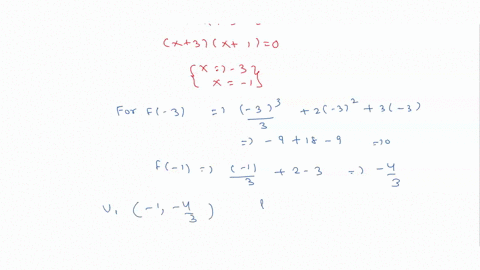 (x+3)(x+1)=0
{x=>-3}
{x=-1}
For f(-3) => (-3)³/3 + 2(-3)² + 3(-3)
=> -9+18-9 =>0
f(-1) => (-1)/3 + 2-3 => -4/3
V, (-1, -4/3)